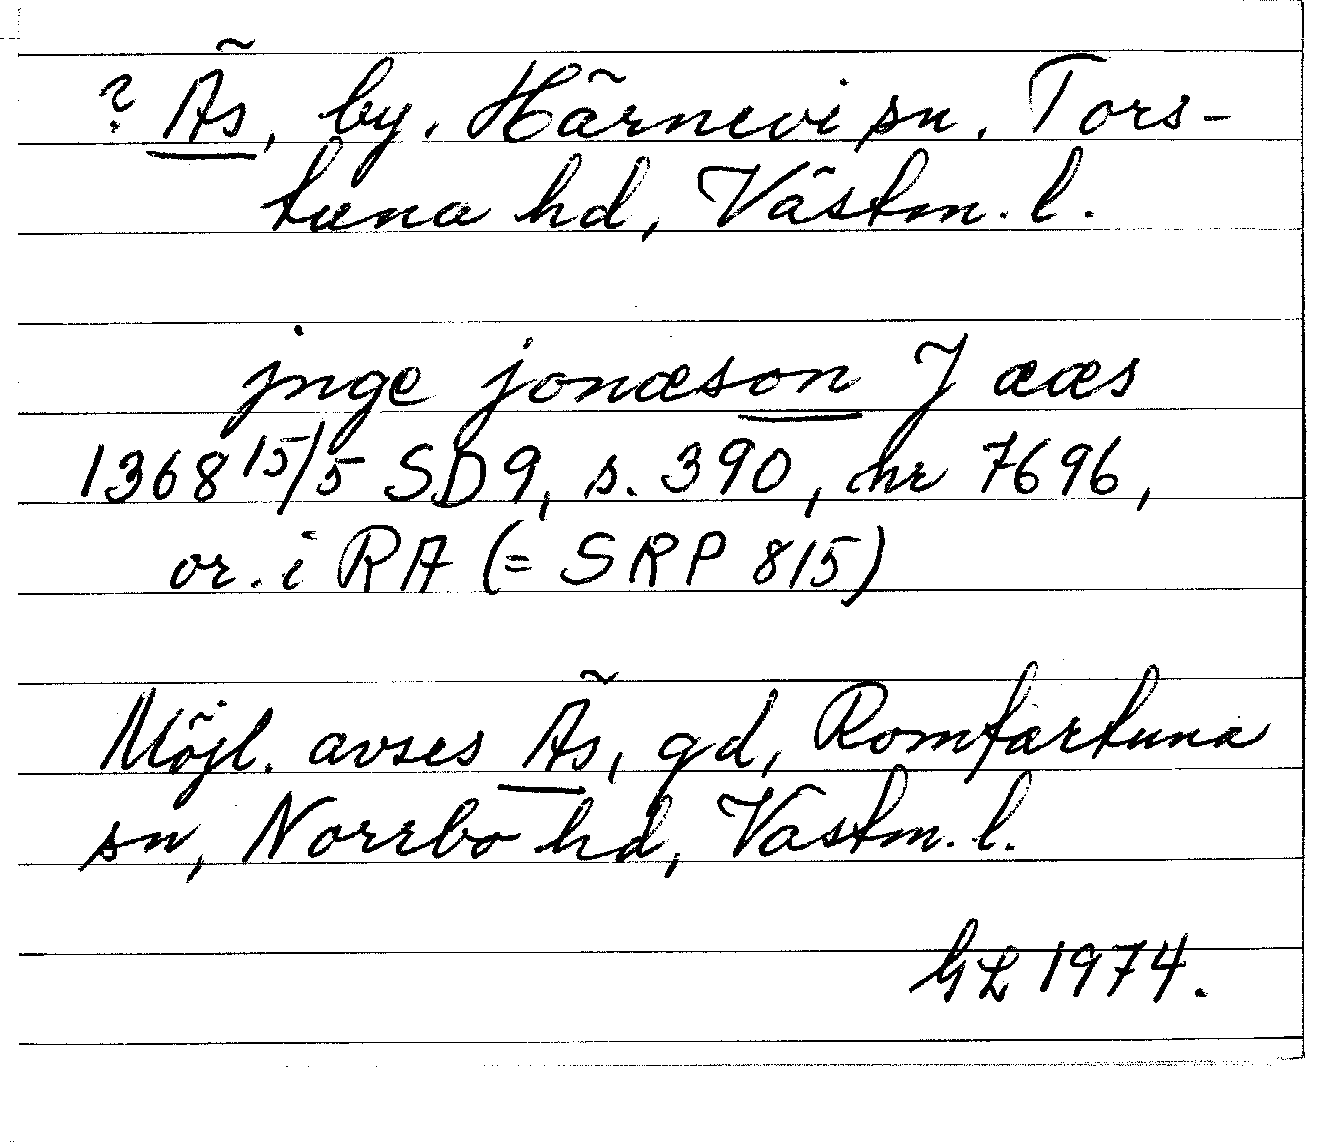 ? Äs, by. Härnevi sn. Tors-
tuna hd, Västm. l.
jnge jonæson J ææs
1368 15/5 SD9, s. 390, nr 7696,
or. i RA (= SRP 815)
Möjl. avses Äs, gd, Romfartuna
sn, Norrbo hd, Västm. l.
GL 1974.